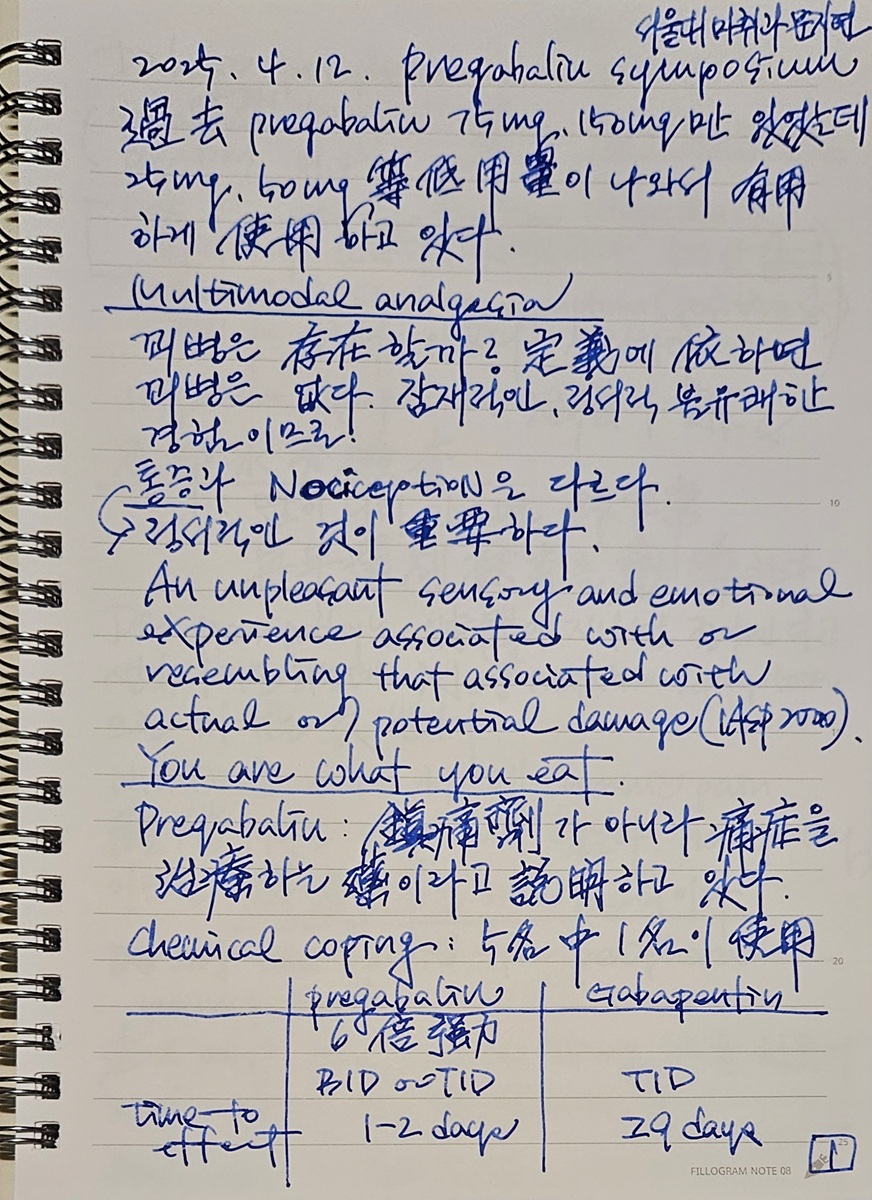 서울대 마취과 문지연
2025. 4. 12. Pregabalin symposium
過去 pregabalin 75mg, 150mg만 있었는데
25mg, 50mg 等 低用量이 나와서 有用
하게 使用하고 있다.
Multimodal analgesia
꾀병은 存在할까? 定義에 依하면
꾀병은 없다. 잠재적인, 정서적 불유쾌한
경험이므로!
통증과 Nociception은 다르다.
→ 정서적인 것이 重要하다.
An unpleasant sensory and emotional
experience associated with or
resembling that associated with
actual or potential damage (IASP 2020).
You are what you eat.
Pregabalin : 鎭痛劑가 아니라 痛症을
治療하는 藥이라고 説明하고 있다.
Chemical coping : 5名 中 1名이 使用
pregabalin Gabapentin
6倍 強力
BID or TID TID
time-to effect 1-2 days 29 days
5
10
20
25
FILLOGRAM NOTE 08
1